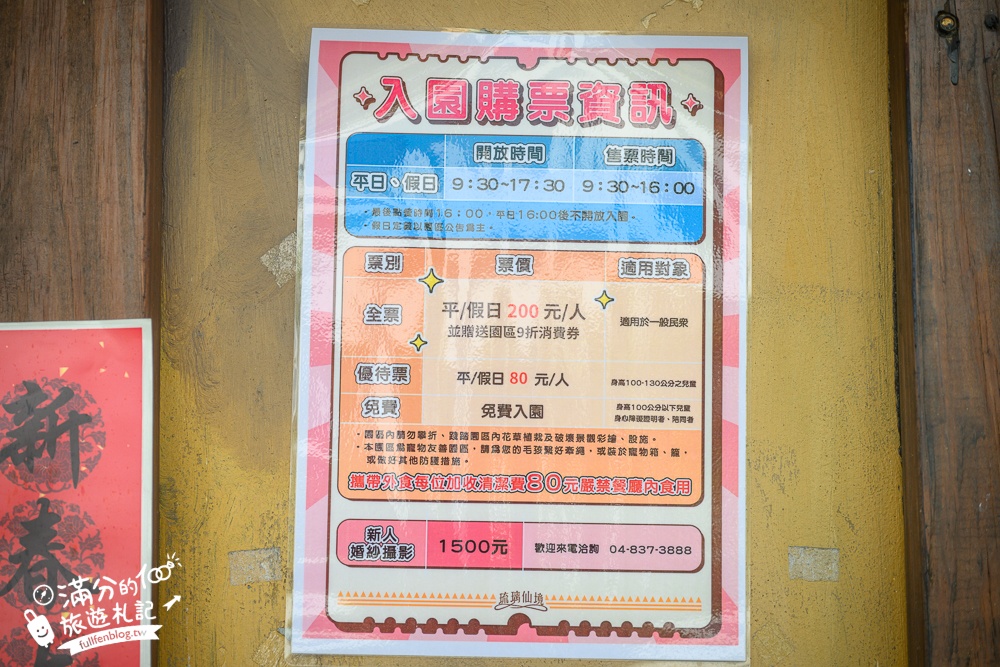 入園購票資訊
開放時間 售票時間
平日、假日 9:30~17:30 9:30~16:00
·最後點餐時間16:00,平日16:00後不開放入園。
·假日定義以園區公告為主。
票別 票價 適用對象
全票 平/假日 200 元/人 適用於一般民眾
並贈送園區9折消費券
優待票 平/假日 80 元/人 身高100-130公分之兒童
免費 免費入園 身高100公分以下兒童
身心障礙證明者、陪同者
·園區內請勿攀折、踐踏園區內花草植栽及破壞景觀彩繪、設施。
·本園區為寵物友善園區,請為您的毛孩繫好牽繩,或裝於寵物箱、籠,
或做好其他防護措施。
攜帶外食每位加收清潔費80元嚴禁餐廳內食用
新人
婚紗攝影 1500元 歡迎來電洽詢 04-837-3888
琉璃仙境
新春
滿分的100
旅遊札記
fullfenblog.tw